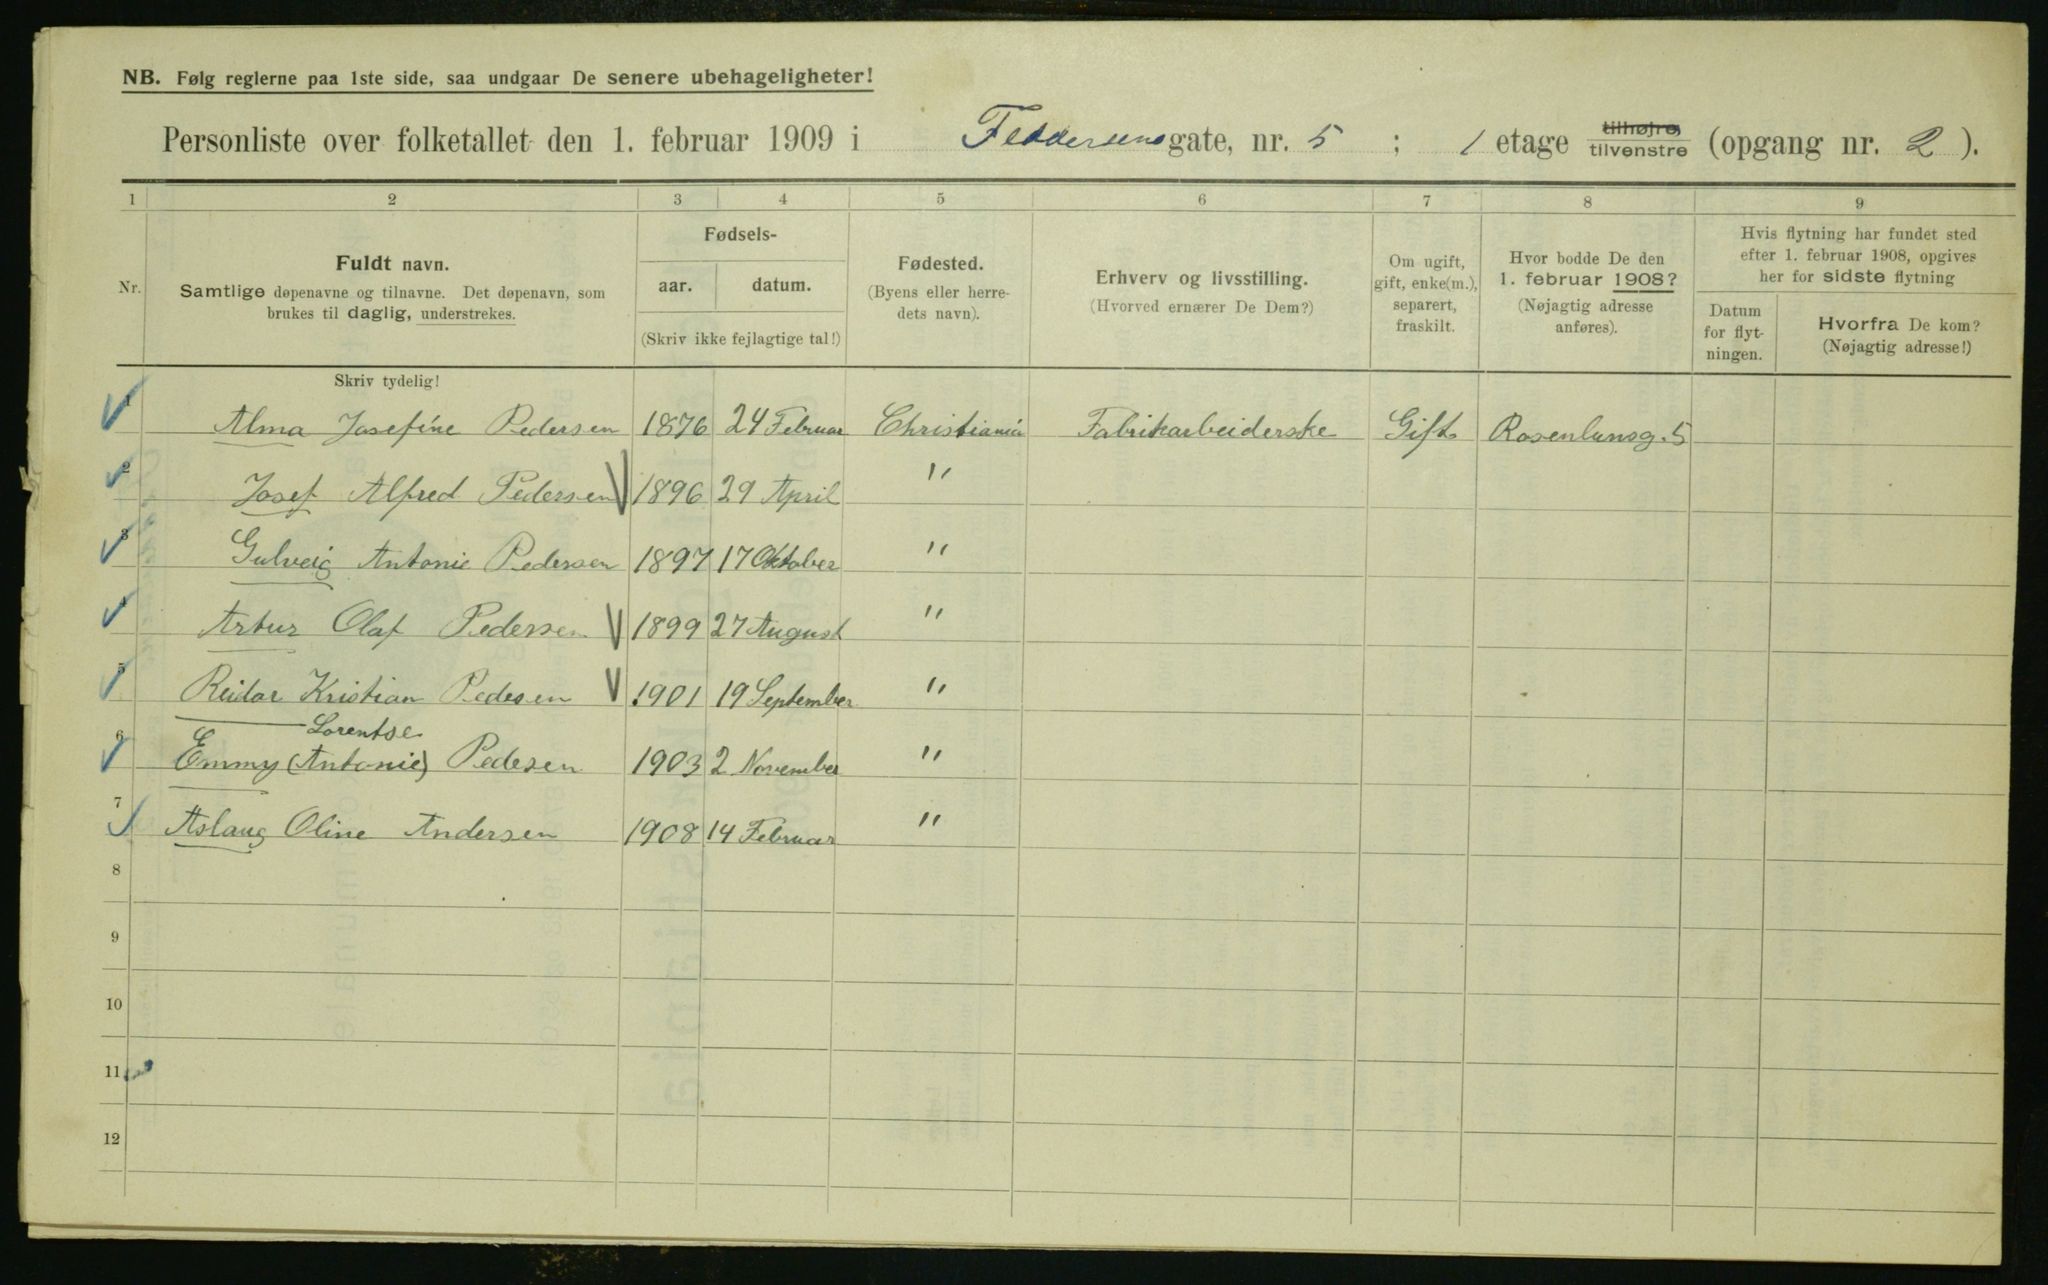 NB. Følg reglerne paa 1ste side, saa undgaar De senere ubehageligheter!
Personliste over folketallet den 1. februar 1909 i Feddersensgate, nr. 5 ; 1 etage tilhøjre tilvenstre (opgang nr. 2).
1 2 3 4 5 6 7 8 9
Nr.
Fuldt navn.
Samtlige døpenavne og tilnavne. Det døpenavn, som
brukes til daglig, understrekes.
Fødsels-
aar. datum.
(Skriv ikke fejlagtige tal!)
Fødested.
(Byens eller herre-
dets navn).
Erhverv og livsstilling.
(Hvorved ernærer De Dem?)
Om ugift,
gift, enke(m.),
separert,
fraskilt.
Hvor bodde De den
1. februar 1908?
(Nøjagtig adresse
anføres).
Hvis flytning har fundet sted
efter 1. februar 1908, opgives
her for sidste flytning
Datum
for flyt-
ningen.
Hvorfra De kom?
(Nøjagtig adresse!)
Skriv tydelig!
1 Alma Josefine Pedersen 1876 24 Februar Christiania Fabrikarbeiderske Gift Rosenlunsg. 5
2 Josef Alfred Pedersen 1896 29 April "
3 Gulveig Antonie Pedersen 1897 17 Oktober "
4 Artur Olaf Pedersen 1899 27 August "
5 Reidar Kristian Pedesen 1901 19 September "
Lorentse
6 Emmy (Antonie) Pedesen 1903 2 November "
7 Aslaug Oline Andersen 1908 14 Februar "
8
9
10
11
12